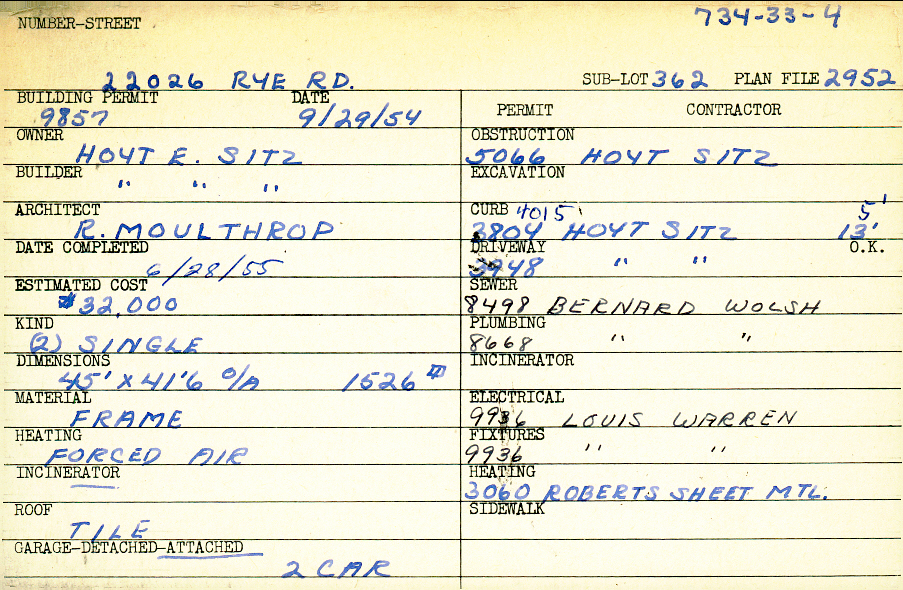 734-33-4
NUMBER-STREET
22026 RYE RD. SUB-LOT 362 PLAN FILE 2952
BUILDING PERMIT DATE
9857 9/29/54
OWNER
HOYT E. SITZ
BUILDER
" " "
ARCHITECT
R. MOULTHROP
DATE COMPLETED
6/28/55
ESTIMATED COST
$32,000
KIND
(2) SINGLE
DIMENSIONS
45' X 41'6 O/A 1526 #
MATERIAL
FRAME
HEATING
FORCED AIR
INCINERATOR
ROOF
TILE
GARAGE-DETACHED-ATTACHED
2 CAR
PERMIT CONTRACTOR
OBSTRUCTION
5066 HOYT SITZ
EXCAVATION
CURB 4015 5'
3804 HOYT SITZ 13'
DRIVEWAY O.K.
3948 " "
SEWER
8498 BERNARD WOLSH
PLUMBING
8668 " "
INCINERATOR
ELECTRICAL
9936 LOUIS WARREN
FIXTURES
9936 " "
HEATING
3060 ROBERTS SHEET MTL.
SIDEWALK